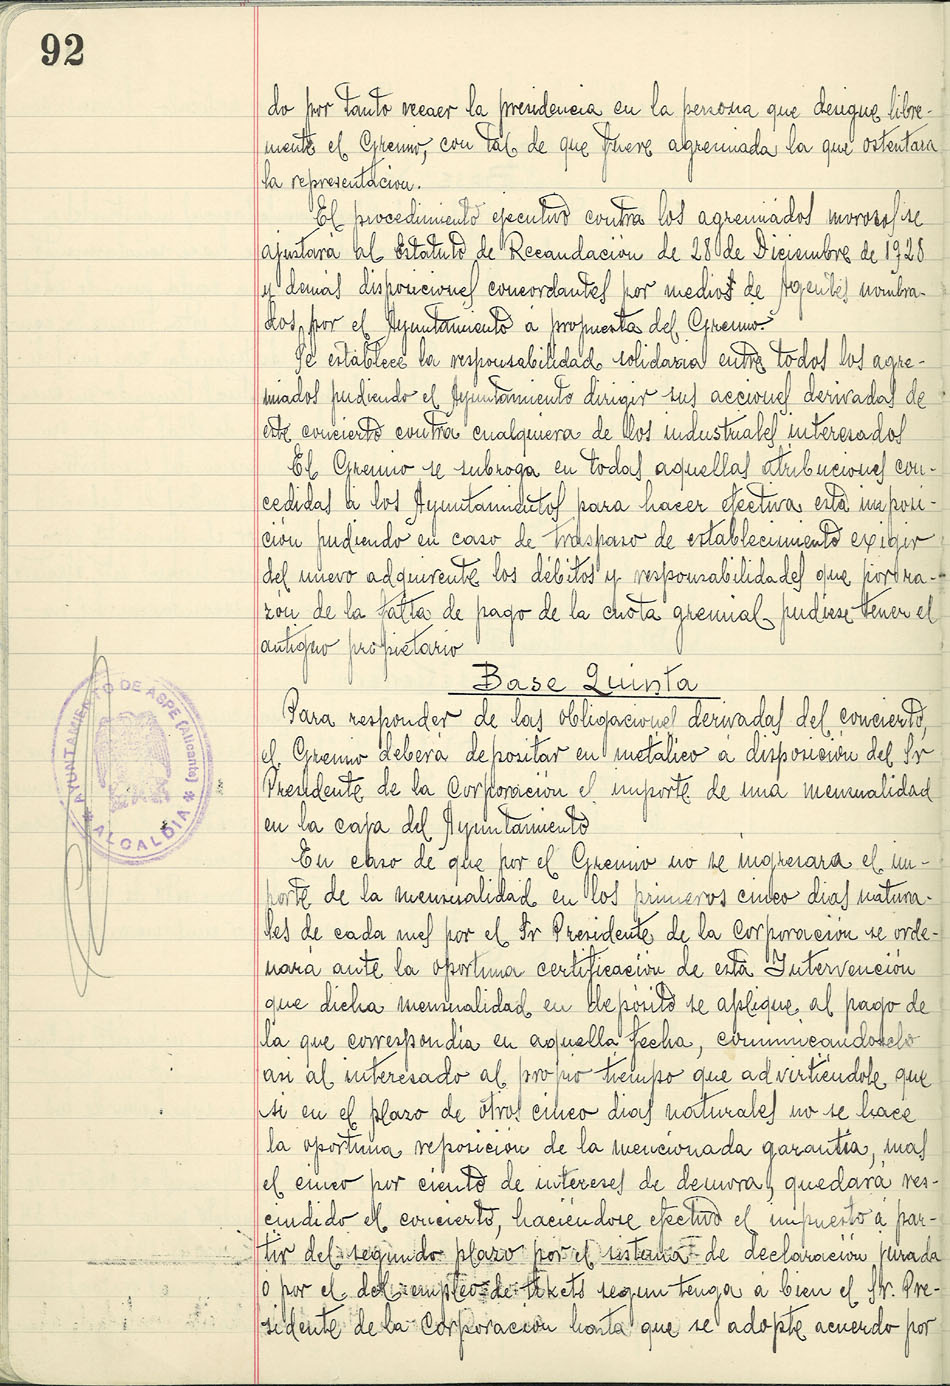 92
do por tanto recaer la presidencia en la persona que designe libre-
mente el Gremio, con tal de que fuere agremiada la que ostentara
la representacion.
El procedimiento ejecutivo contra los agremiados morosos se
ajustará al Estatuto de Recaudación de 28 de Diciembre de 1928
y demás disposiciones concordantes por medios de Agentes nombra-
dos por el Ayuntamiento á propuesta del Gremio.
Se establece la responsabilidad solidaria entre todos los agre-
miados pudiendo el Ayuntamiento dirigir sus acciones derivadas de
este concierto contra cualquiera de los industriales interesados
El Gremio se subroga en todas aquellas atribuciones con-
cedidas á los Ayuntamientos para hacer efectiva esta imposi-
ción pudiendo en caso de traspaso de establecimiento exigir
del nuevo adquirente los débitos y responsabilidades que por ra-
zón de la falta de pago de la cuota gremial pudiese tener el
antiguo propietario
Base Quinta
Para responder de las obligaciones derivadas del concierto,
el Gremio deberá depositar en metálico á disposición del Sr
Presidente de la Corporación el importe de una mensualidad
en la caja del Ayuntamiento
En caso de que por el Gremio no se ingresara el im-
porte de la mensualidad en los primeros cinco dias natura-
les de cada mes por el Sr Presidente de la Corporación se orde-
nará ante la oportuna certificación de esta Intervención
que dicha mensualidad en depósito se aplique al pago de
la que correspondia en aquella fecha, comunicandoselo
asi al interesado al propio tiempo que advirtiéndole que
si en el plazo de otros cinco dias naturales no se hace
la oportuna reposición de la mencionada garantia, mas
el cinco por ciento de intereses de demora, quedará res-
cindido el concierto, haciéndose efectivo el impuesto á par-
tir del segundo plazo por el sistema de declaración jurada
o por el del empleo de tikets segun tenga á bien el Sr. Pre-
sidente de la Corporación hasta que se adopte acuerdo por
AYUNTAMIENTO DE ASPE (Alicante)
* ALCALDIA *